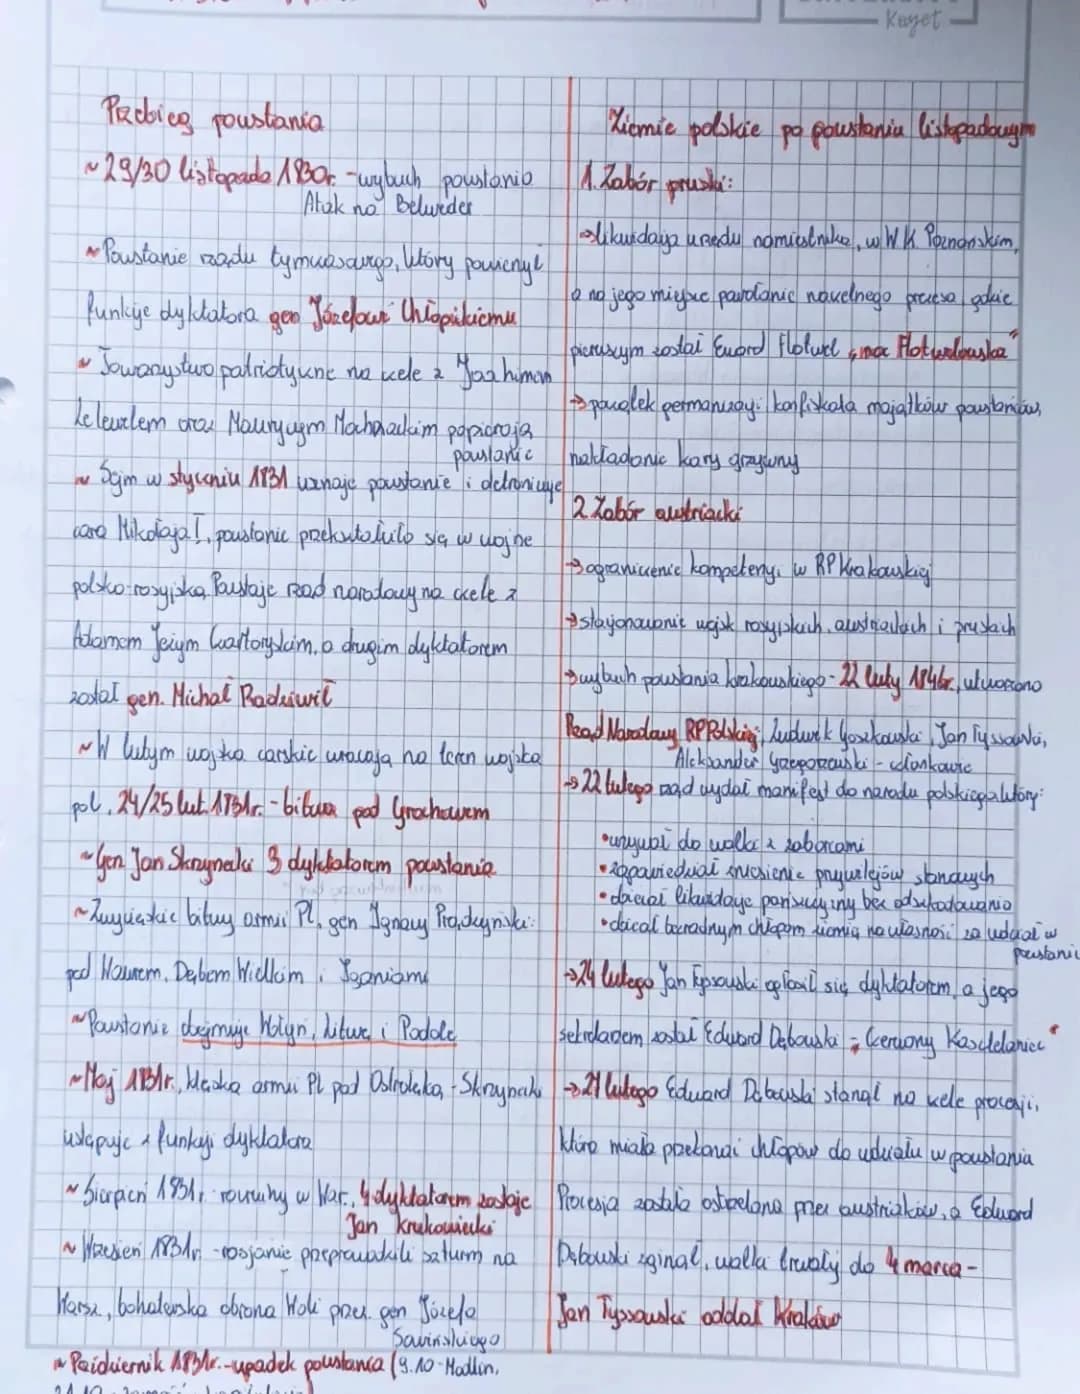 Kayet
Przebieg powstania
~29/30 listopada 1830r. - wybuch powstania
Atak na Belweder
~Powstanie rządu tymczasowego, który powierzył
funkcje dyktatora gen Józefowi Chłopickiemu
~ Towarzystwo patriotyczne na czele z Joahimem
Lelewelem oraz Maurycym Mochnackim popierają
powstanie
~ Sejm w styczniu 1831 uznaje powstanie i detronizuje
cara Mikołaja I, powstanie przekształciło się w wojnę
polsko-rosyjską. Powstaje rząd narodowy na czele z
Adamem Jerzym Czartoryskim, a drugim dyktatorem
został gen. Michał Radziwił
~W lutym wojska carskie wracają na teren wojska
pol. 24/25 lut. 1831r. - bitwa pod Grochowem
~Gen Jan Skrzynecki 3 dyktatorem powstania
~Zwycięskie bitwy armii Pl. gen Ignacy Prądzyński:
pod Wawrem, Dębem Wielkim i Iganiami
~Powstanie obejmuje Wołyń, Litwę i Podole
~Maj 1831r., klęska armii Pl pod Ostrołęką, - Skrzynecki
ustępuje z funkcji dyktatora
~ Sierpień 1831r. rozruchy w War., 4 dyktatorem zostaje
Jan Krukowiecki
~ Wrzesień 1831r. - rosjanie przeprowadzili szturm na
Warsz, bohaterska obrona Woli przez gen Józefa
Sowińskiego
~ Październik 1831r. - upadek powstania (9.10 - Modlin,
Ziemie polskie po powstaniu listopadowym
1. Zabór pruski:
→likwidacja urzędu namiestnika, w W.K. Poznańskim,
a na jego miejsce powołanie naczelnego prezesa, gdzie
pierwszym został Edward Flotwell „noc Flotwellowska"
→początek germanizacji: konfiskata majątków powstańców,
nakładanie kary grzywny
2 Zabór austriacki
→ograniczenie kompetencji w RP Krakowskiej
→stacjonowanie wojsk rosyjskich, austriackich i pruskich
→wybuch powstania krakowskiego - 22 luty 1846r., utworzono
Rząd Narodowy RP Polskiej; Ludwik Gorzkowski, Jan Tyssowski,
Aleksander Grzegorzewski - członkowie
→22 lutego rząd wydał manifest do narodu polskiego, który:
•wzywał do walki z zaborcami
•zapowiedział zniesienie przywilejów stanowych
•obiecał likwidację pańszczyzny bez odszkodowania
•obiecał bezrolnym chłopom ziemię na własność za udział w
powstaniu
→24 lutego Jan Tyssowski ogłosił się dyktatorem, a jego
sekretarzem został Edward Dębowski - "czerwony Kasztelanic"
→27 lutego Edward Dębowski stanął na czele procesji,
która miała przekonać chłopów do udziału w powstania
Procesja została ostrzelana przez austriaków, a Edward
Dębowski zginął, walki trwały do 4 marca -
Jan Tyssowski oddał Kraków